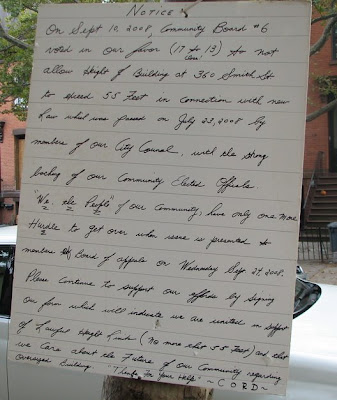 NOTICE
On Sept 10, 2008, Community Board #6
voted in our favor (17 to 13) to not
allow Height of Building at 360 Smith St
to exceed 55 Feet in connection with new
Law what was passed on July 23, 2008 by
members of our City Council, with the strong
backing of our Community Elected Officials.
"We, the People" of our Community, have only one more
Hurdle to get over when issue is presented to
members Board of appeals on Wednesday Sept. 24, 2008.
Please Continue to support our efforts by signing
our form which will indicate we are united in support
of Lawful Height Limit (No more that 55 Feet) and that
we Care about the Future of our Community regarding
oversized Building. "Thanks For Your Help" ~ CORD ~